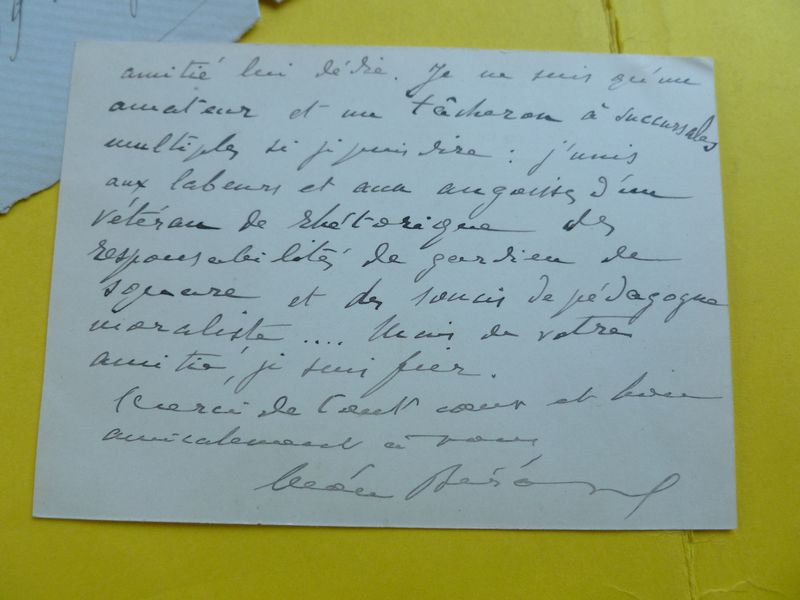 amitié lui dédie. Je ne suis qu'un
amateur et un tâcheron à succursales
multiples si je puis dire : j'unis
aux labeurs et aux angoisses d'un
vétéran de rhétorique des
responsabilités de gardien de
square et des soucis de pédagogue
moraliste .... Mais de votre
amitié, je suis fier.
Merci de tout cœur et bien
amicalement à vous
Léon Bérard